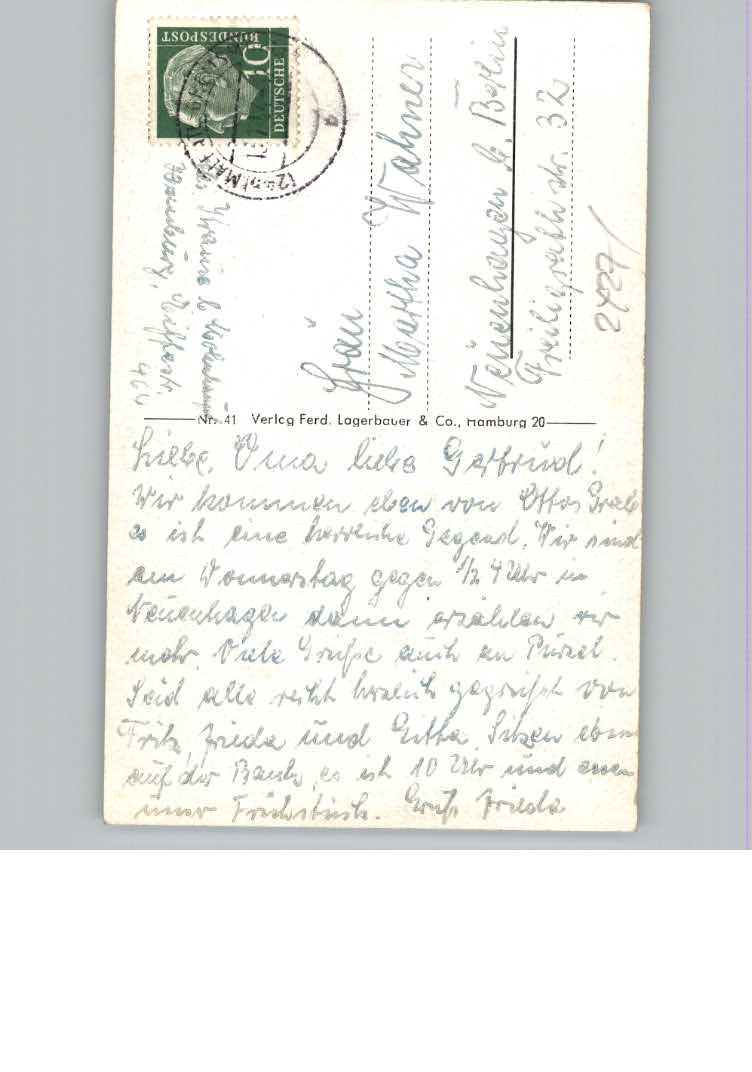 DEUTSCHE
BUNDESPOST
10
Frau
Martha Wahner
Neuenhagen b. Berlin
Freiligrath str. 32
2727/
Hamburg,
464
Nr. 41 Verlag Ferd. Lagerbauer & Co., Hamburg 20
Liebe Oma liebe Gertrud!
Wir kommen eben von Ottos Grab
es ist eine herrliche Gegend. Wir sind
am Donnerstag gegen 1/2 4 Uhr in
Neuenhagen dann erzählen wir
mehr. Viele Grüße auch an Purzel.
Seid alle recht herzlich gegrüßt von
Fritz, Frieda und Gitta. Sitzen eben
auf der Bank, es ist 10 Uhr und essen
unser Frühstück. Gruß Frieda